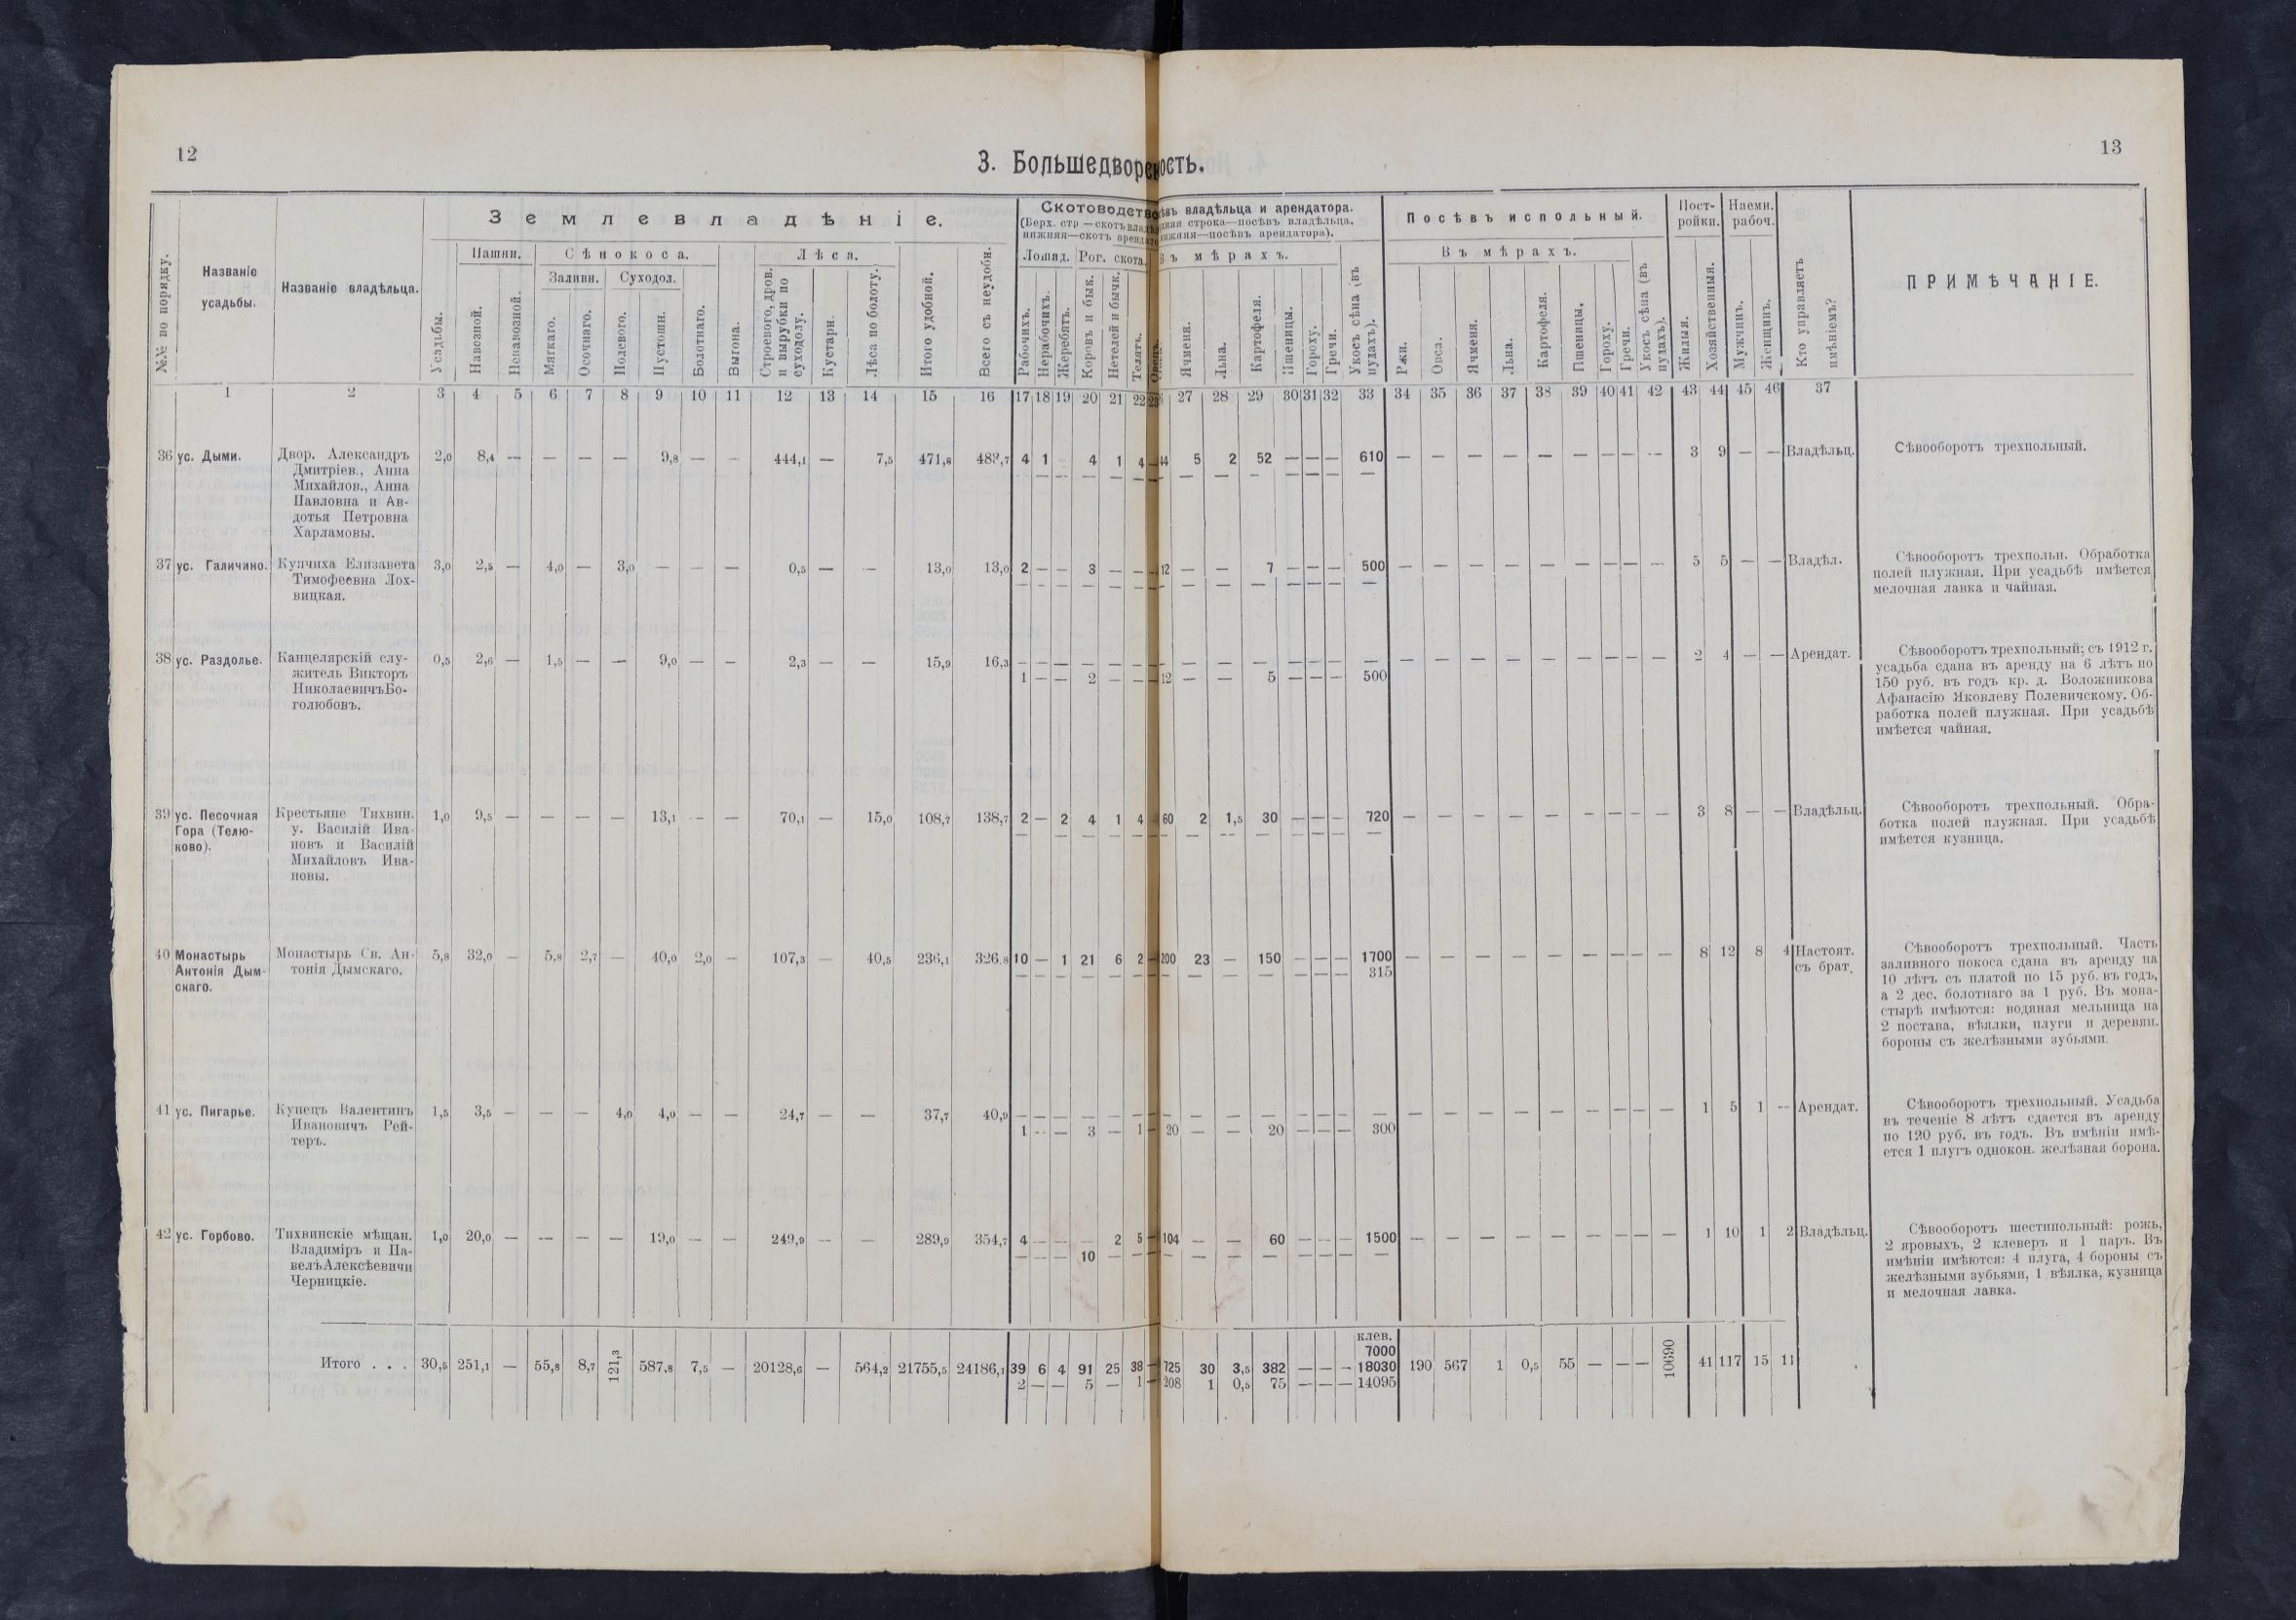 12
13
3. Большедворс ость.
№№ по порядку.
Названіе усадьбы.
Названіе владѣльца.
Землевладѣніе.
Усадьбы.
Пашни.
Навозной.
Ненавозной.
Сѣнокоса.
Заливн.
Мягкаго.
Осочнаго.
Суходол.
Полевого.
Пустошн.
Болотнаго.
Выгона.
Лѣса.
Строевого, дров. и вырубки по суходолу.
Кустарн.
Лѣса по болоту.
Итого удобной.
Всего съ неудобн.
Скотоводство
(Верх. стр —скотъ влад
нижняя—скотъ аренд
Лошад.
Рабочихъ.
Нерабочихъ.
Жеребятъ.
Рог. скота.
Коровъ и бык.
Нетелей и бычк.
Телятъ.
Овецъ.
ѣвъ владѣльца и арендатора.
строка—посѣвъ владѣльца,
нижняя—посѣвъ арендатора).
Въ мѣрахъ.
Ячменя.
Льна.
Картофеля.
Пшеницы.
Гороху.
Гречи.
Укосъ сѣна (въ пудахъ).
Посѣвъ испольный.
Въ мѣрахъ.
Ржи.
Овса.
Ячменя.
Льна.
Картофеля.
Пшеницы.
Гороху.
Гречи.
Укосъ сѣна (въ пудахъ).
Пост-
ройки.
Жилыя.
Хозяйственныя.
Наемн.
рабоч.
Мужчинъ.
Женщинъ.
Кто управляетъ имѣніемъ?
ПРИМѢЧАНІЕ.
1 2 3 4 5 6 7 8 9 10 11 12 13 14 15 16 17 18 19 20 21 22 27 28 29 30 31 32 33 34 35 36 37 38 39 40 41 42 43 44 45 46 37
36 ус. Дыми.
Двор. Александръ
Дмитріев., Анна
Михайлов., Анна
Павловна и Ав-
дотья Петровна
Харламовы.
2,0 8,4 — — — — 9,8 — — 444,1 — 7,5 471,8 483,7 4 1 4 1 4 — 44 5 2 52 — — — 610 — — — — — — — — — 3 9 — — Владѣльц.
Сѣвооборотъ трехпольный.
37 ус. Галичино.
Купчиха Елизавета
Тимофеевна Лох-
вицкая.
3,0 2,5 — 4,0 — 3,0 — — — 0,5 — — 13,0 13,0 2 — — 3 — — — 12 — — 7 — — — 500 — — — — — — — — — 5 5 — — Владѣл.
Сѣвооборотъ трехпольн. Обработка
полей плужная. При усадьбѣ имѣется
мелочная лавка и чайная.
38 ус. Раздолье.
Канцелярскій слу-
житель Викторъ
НиколаевичъБо-
голюбовъ.
0,5 2,6 — 1,5 — — 9,0 — — 2,3 — — 15,9 16,3 — — — — — — — — — — — — — — — — — — — — — — — 2 4 — — Арендат.
1 — — 2 — — — 12 — — 5 — — — 500
Сѣвооборотъ трехпольный; съ 1912 г.
усадьба сдана въ аренду на 6 лѣтъ по
150 руб. въ годъ кр. д. Воложникова
Афанасію Яковлеву Полевичскому. Об-
работка полей плужная. При усадьбѣ
имѣется чайная.
39 ус. Песочная
Гора (Телю-
ково).
Крестьяне Тихвин.
у. Василій Ива-
новъ и Василій
Михайловъ Ива-
новы.
1,0 9,5 — — — — 13,1 — — 70,1 — 15,0 108,7 138,7 2 — 2 4 1 4 — 60 2 1,5 30 — — — 720 — — — — — — — — — 3 8 — — Владѣльц.
Сѣвооборотъ трехпольный. Обра-
ботка полей плужная. При усадьбѣ
имѣется кузница.
40 Монастырь
Антонія Дым-
скаго.
Монастырь Св. Ан-
тонія Дымскаго.
5,8 32,0 — 5,8 2,7 — 40,0 2,0 — 107,3 — 40,5 236,1 326,8 10 — 1 21 6 2 — 200 23 — 150 — — — 1700 — — — — — — — — — 8 12 8 4 Настоят.
съ брат.
— — — — — — — — — — — — — 315
Сѣвооборотъ трехпольный. Часть
заливного покоса сдана въ аренду на
10 лѣтъ съ платой по 15 руб. въ годъ,
а 2 дес. болотнаго за 1 руб. Въ мона-
стырѣ имѣются: водяная мельница на
2 постава, вѣялки, плуги и деревян.
бороны съ желѣзными зубьями.
41 ус. Пигарье.
Купецъ Валентинъ
Ивановичъ Рей-
теръ.
1,5 3,5 — — — 4,0 4,0 — — 24,7 — — 37,7 40,9 — — — — — — — — — — — — — — — — — — — — — — — 1 5 1 — Арендат.
1 — — 3 — 1 — 20 — — 20 — — — 300
Сѣвооборотъ трехпольный. Усадьба
въ теченіе 8 лѣтъ сдается въ аренду
по 120 руб. въ годъ. Въ имѣніи имѣ-
ется 1 плугъ однокон. желѣзная борона.
42 ус. Горбово.
Тихвинскіе мѣщан.
Владиміръ и Па-
велъАлексѣевичи
Черницкіе.
1,0 20,0 — — — — 19,0 — — 249,9 — — 289,9 354,7 4 — — — 2 5 — 104 — — 60 — — — 1500 — — — — — — — — — 1 10 1 2 Владѣльц.
— — — 10 — — — — — — — — — — —
Сѣвооборотъ шестипольный: рожь,
2 яровыхъ, 2 клеверъ и 1 паръ. Въ
имѣніи имѣются: 4 плуга, 4 бороны съ
желѣзными зубьями, 1 вѣялка, кузница
и мелочная лавка.
клев.
7000
Итого . . . 30,5 251,1 — 55,8 8,7 121,3 587,8 7,5 — 20128,6 — 564,2 21755,5 24186,1 39 6 4 91 25 38 — 725 30 3,5 382 — — — 18030 190 567 1 0,5 55 — — — 10690 41 117 15 11
2 — — 5 — 1 — 208 1 0,5 75 — — — 14095